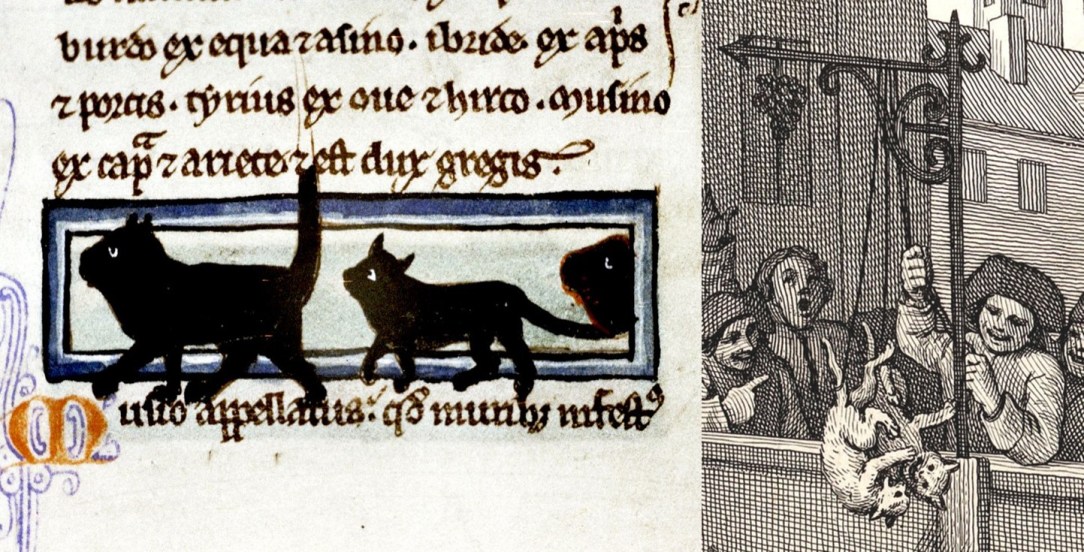 burdo ex equa ⁊ asino. ibride ex ap̄s
⁊ porcis. tyrius ex oue ⁊ hirco. musino
ex cap̄ᵃ ⁊ ariete ⁊ est dux gregis.
Musio appellatus. qđ muribꝫ infestꝰ